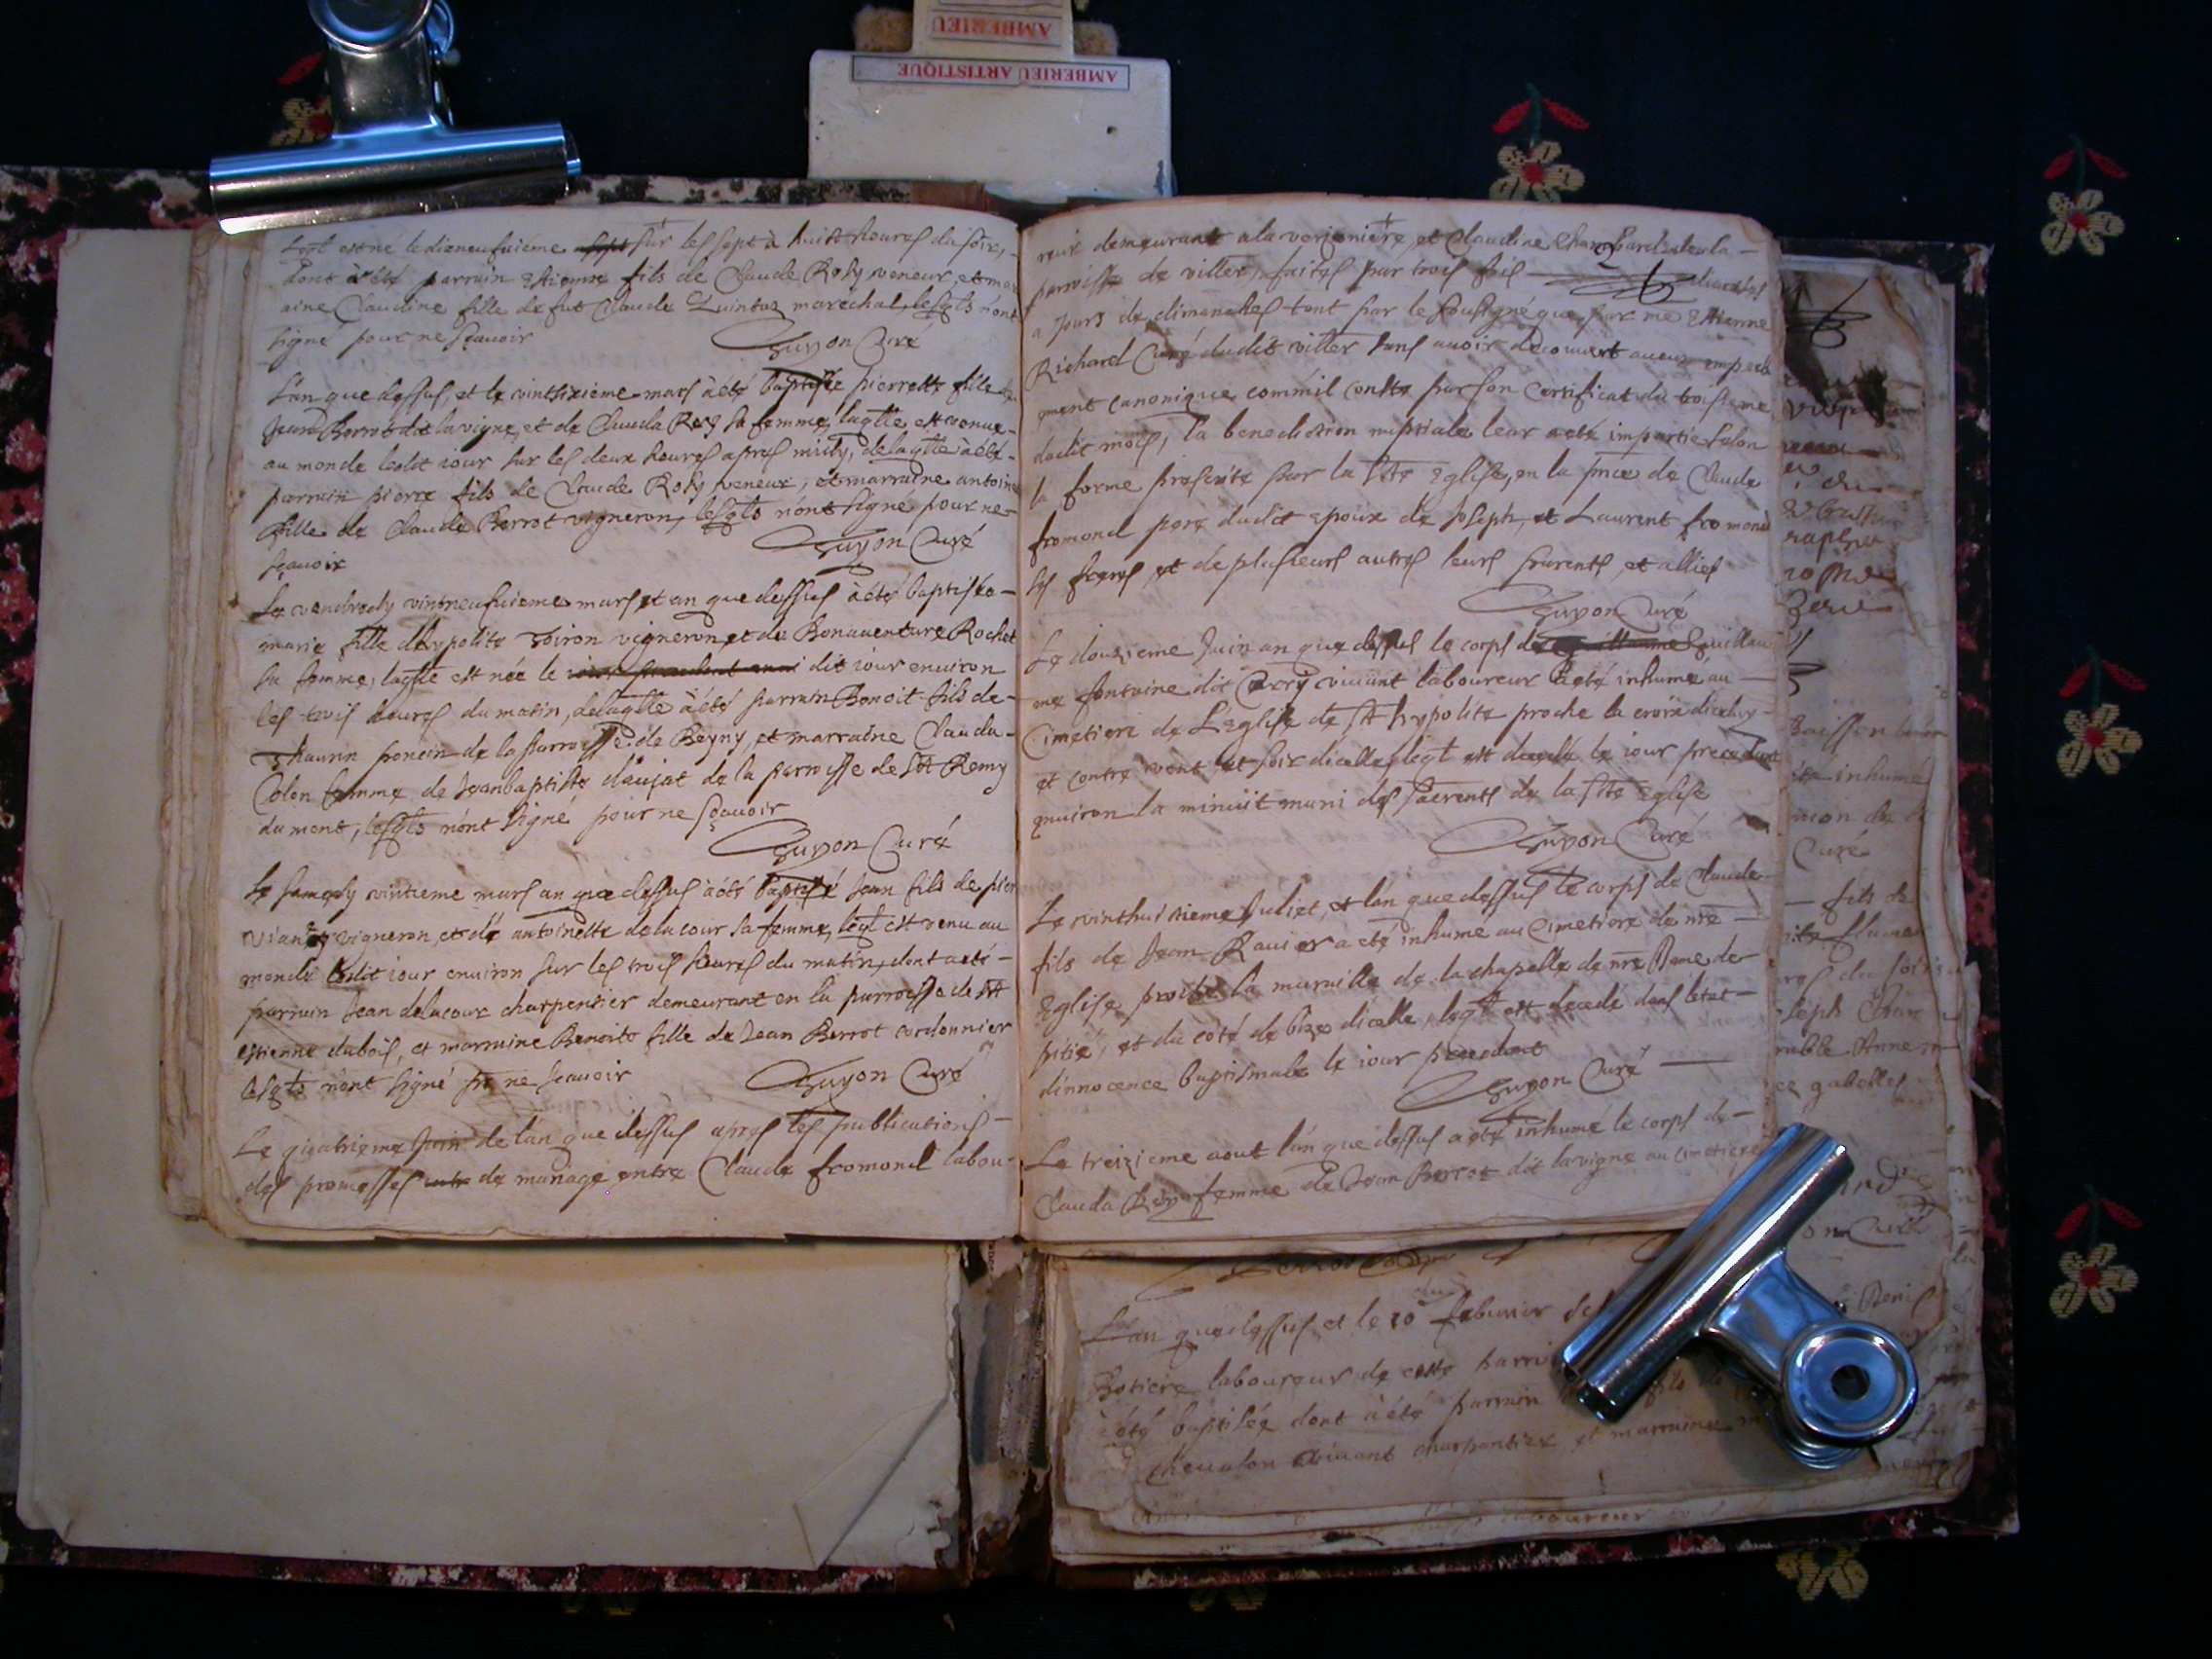 AMBERIEU
AMBERIEU ARTISTIQUE
leqt est né le dizneufuiéme sur les sept à huict heures du soir,
dont à été parrain Etienne fils de Claude Rosy veneur, et mar
aine Claudine fille de fut Claude Quintaz maréchal, lesqts n'ont
signé pour ne sçauoir
Guyon Curé
L'an que dessus, et le vintsixieme mars à été baptisée pierrette fille de
Jean Berrot dit la vigne, et de Clauda Rey sa femme, laqtte est venue
au monde ledit iour sur les deux heures apres midy, de laqtte à été
parrain pierre fils de Claude Rosy veneur, et marraine antoine
fille de Claude Berrot vigneron, lesqts n'ont signé pour ne
Guyon Curé
sçauoir
Le vendredy vintneufuieme mars et an que dessus à été baptisée
marie fille d'hypolite Goiron vigneron, et de Bonauenture Rochet
sa femme, laqtte est née le dit iour enuiron
les trois heures du matin, de laqtte à été parrain Benoit fils de
Thaurin poncin de la parroisse de Beyny, et marraine Clauda
Colon femme de Jeanbaptiste daujat de la parroisse de St Remy
du mont, lesqts n'ont signé pour ne sçauoir
Guyon Curé
Le samedy vintieme mars an que dessus à été baptisé Jean fils de pier
vigneron, et dé antoinette delacour sa femme, leqt est venu au
monde ledit iour enuiron sur les trois heures du matin, dont a eté
parrain Jean delacour charpentier demeurant en la parroisse de St
estienne dubois, et marraine Benoite fille de Jean Berrot cordonnier
lesqts n'ont signé pr ne scauoir
Guyon Curé
Le quatrieme Juin de l'an que dessus apres les publications
des promesses de mariage entre Claude fromond labou-
reur demeurant a la verjonnière, et Claudine de la
parroisse de villett, faites par trois fois
a jours de dimenches tant par le soussigné que par me Etienne
Richard Curé dudit villett sans auoir decouuert aucun empech
ement canonique comm'il conste par son certificat du troisieme
dudit mois, la benediction nuptiale leur a eté impartie selon
la forme prescrite par la Ste Eglise, en la pnce de Claude
fromond pere dudit epoux de Joseph, et Laurent fromond
ses freres, et de plusieurs autres leurs parents, et allies
Guyon Curé
Le douzieme Juin an que dessus le corps de Guillau
me fontaine dit Carry viuant laboureur à eté inhumé au
Cimetiere de L'eglise de St hypolite proche la croix dicelluy
et contre vent et soir dicelle, leqt est decedé le iour precedant
enuiron la minuit muni des sacrents de la Ste Eglise
Guyon Curé
Le vinthuictieme Juliet, et l'an que dessus le corps de Claude
fils de Jean Rauier a eté inhumé au Cimetiere de nre
Eglise proche la muraille de la chapelle de nre Dame de
pitié, et du côté de bize dicelle, leqt est decedé dans l'etat
dinnocence baptismale le iour precedant
Guyon Curé
Le treizieme aout l'an que dessus a eté inhumé le corps de
Clauda Rey femme de Jean Berrot dit lavigne au cimetiere
inhumé
Curé
fils de
du soir
Anne
L'an que dessus et le 10 feburier
laboureur de cette parroi
à eté baptisée dont à été parrain
cheualon viuant charpentier et marraine
laboureur